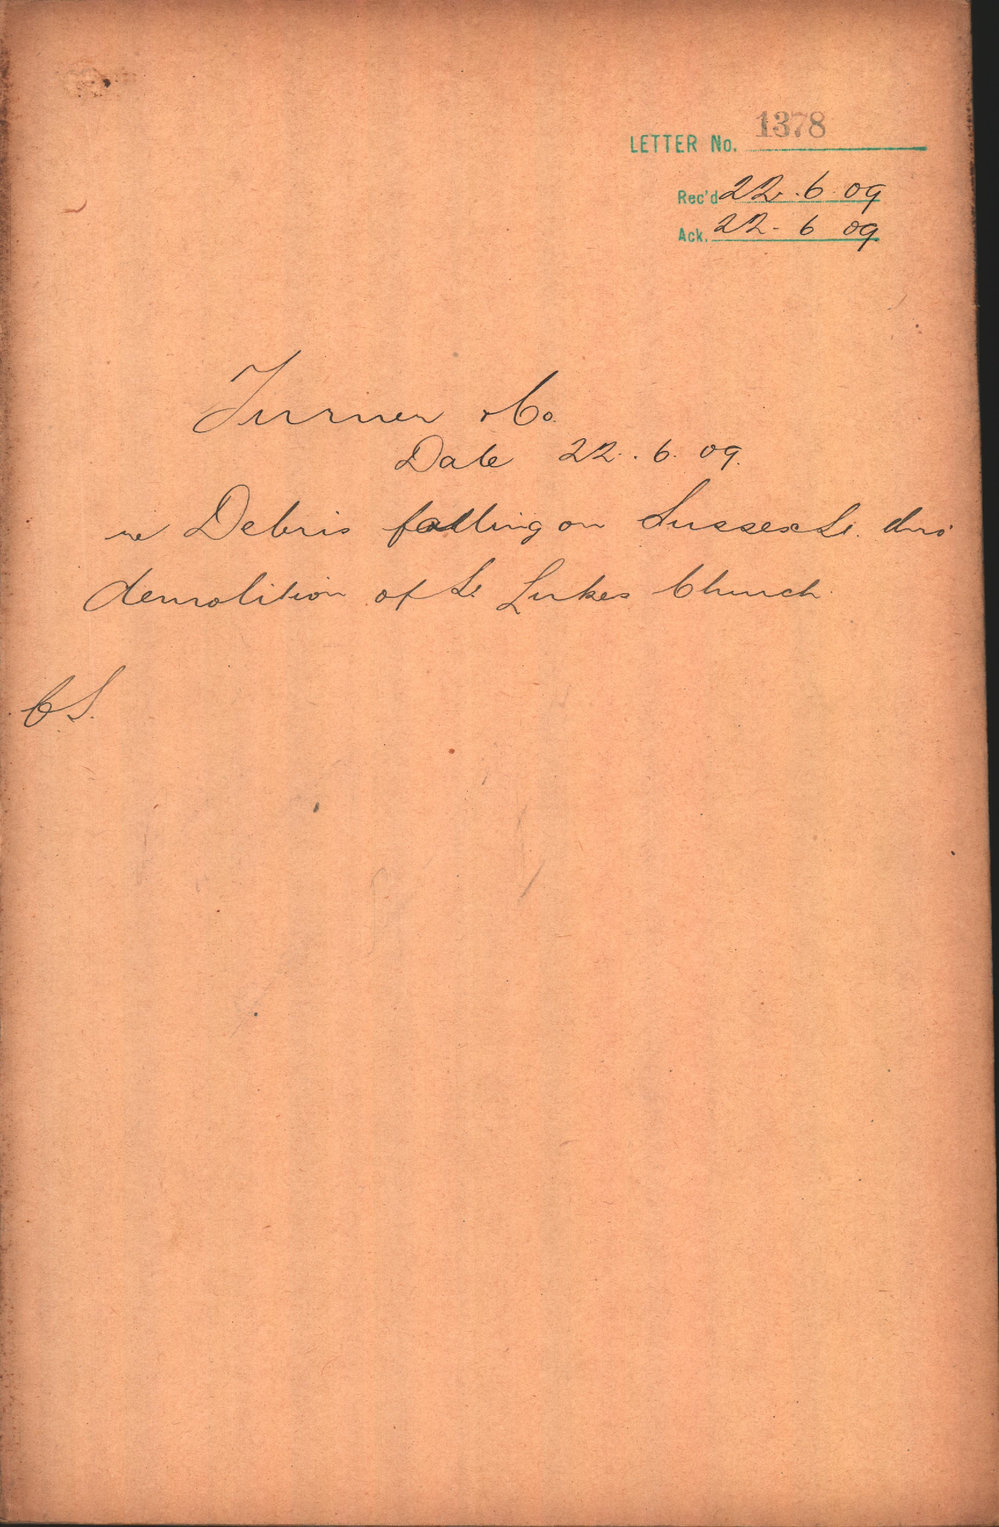 LETTER No. 1378
Rec'd 22.6.09
Ack. 22-6 09
Turner & Co.
Date 22.6.09.
re Debris falling on Sussex St.
demolition of St Lukes Church.
C.S.